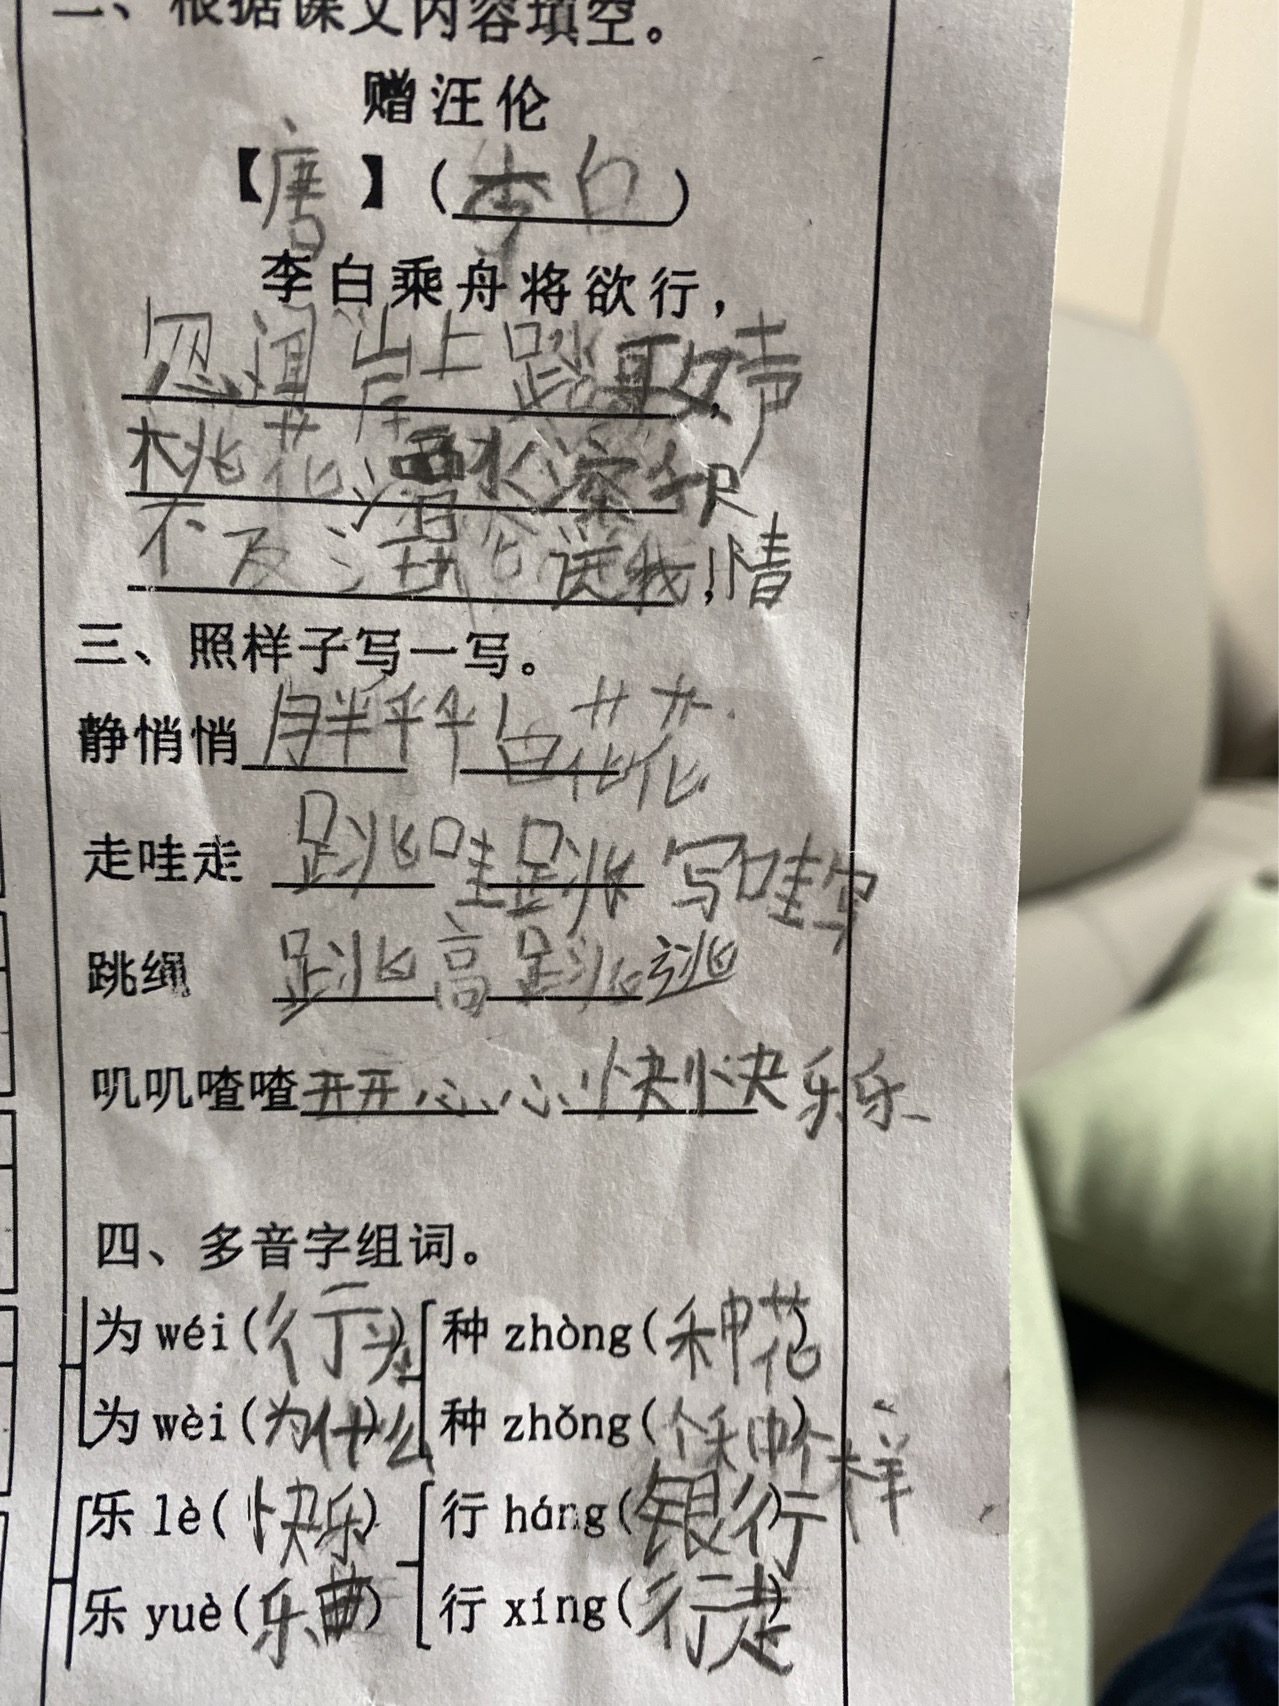 二、根据课文内容填空。
赠汪伦
【唐】(李白)
李白乘舟将欲行，
忽闻岸上踏歌声，
桃花潭水深千尺
不及汪伦送我情！
三、照样子写一写。
静悄悄 胖乎乎 白花花
走哇走 跳哇跳 写哇写
跳绳 跳高 跳远
叽叽喳喳 开开心心 快快乐乐
四、多音字组词。
为 wéi(行为) 种 zhòng(种花)
为 wèi(为什么) 种 zhǒng(各种各样)
乐 lè(快乐) 行 háng(银行)
乐 yuè(乐曲) 行 xíng(行走)